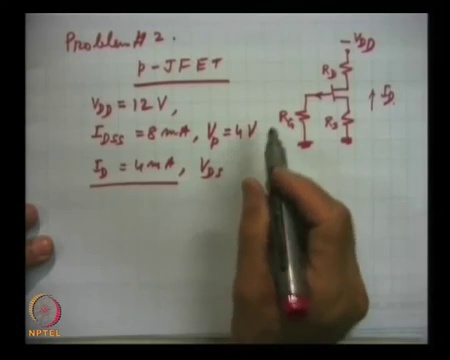 Problem # 2.
p-JFET
VDD = 12 V,
IDSS = 8 mA, Vp = 4V
ID = 4 mA, VDS
-VDD
RD
ID
RG
RS
NPTEL